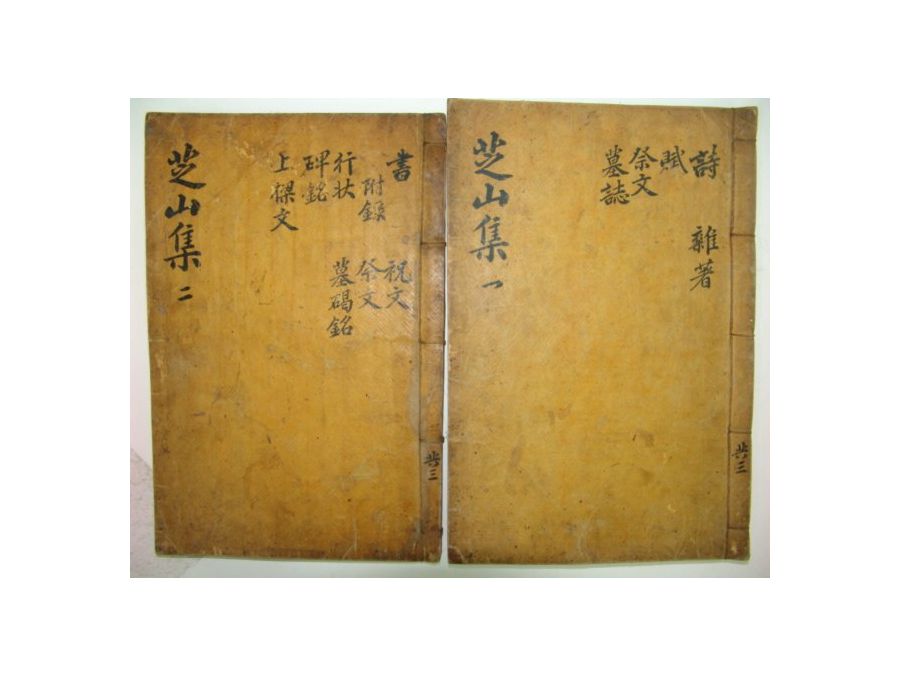 芝山集 一
詩 雜著
賦
祭文
墓誌
共三
芝山集 二
書 祝文
附錄 祭文
行狀 墓碣銘
碑銘
上樑文
共三